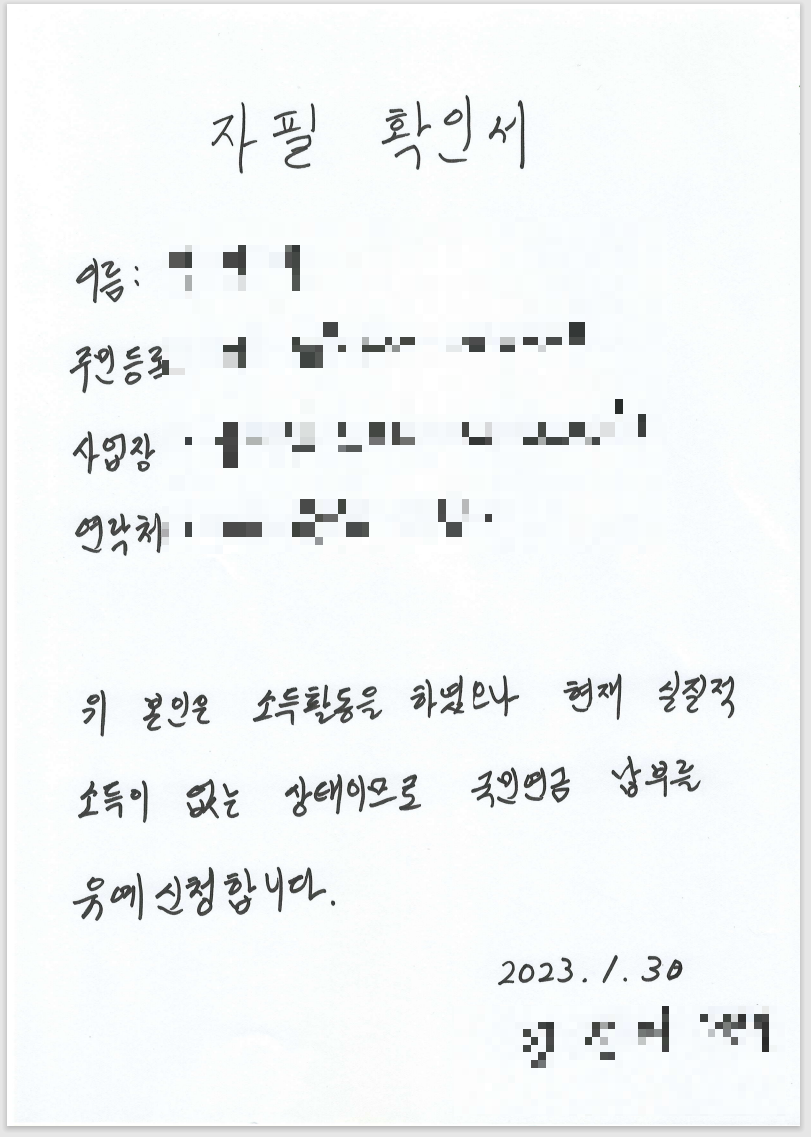 자필 확인서
이름:
주민등록
사업장
연락처
위 본인은 소득활동을 하였으나 현재 실질적
소득이 없는 상태이므로 국민연금 납부를
유예신청합니다.
2023. 1. 30